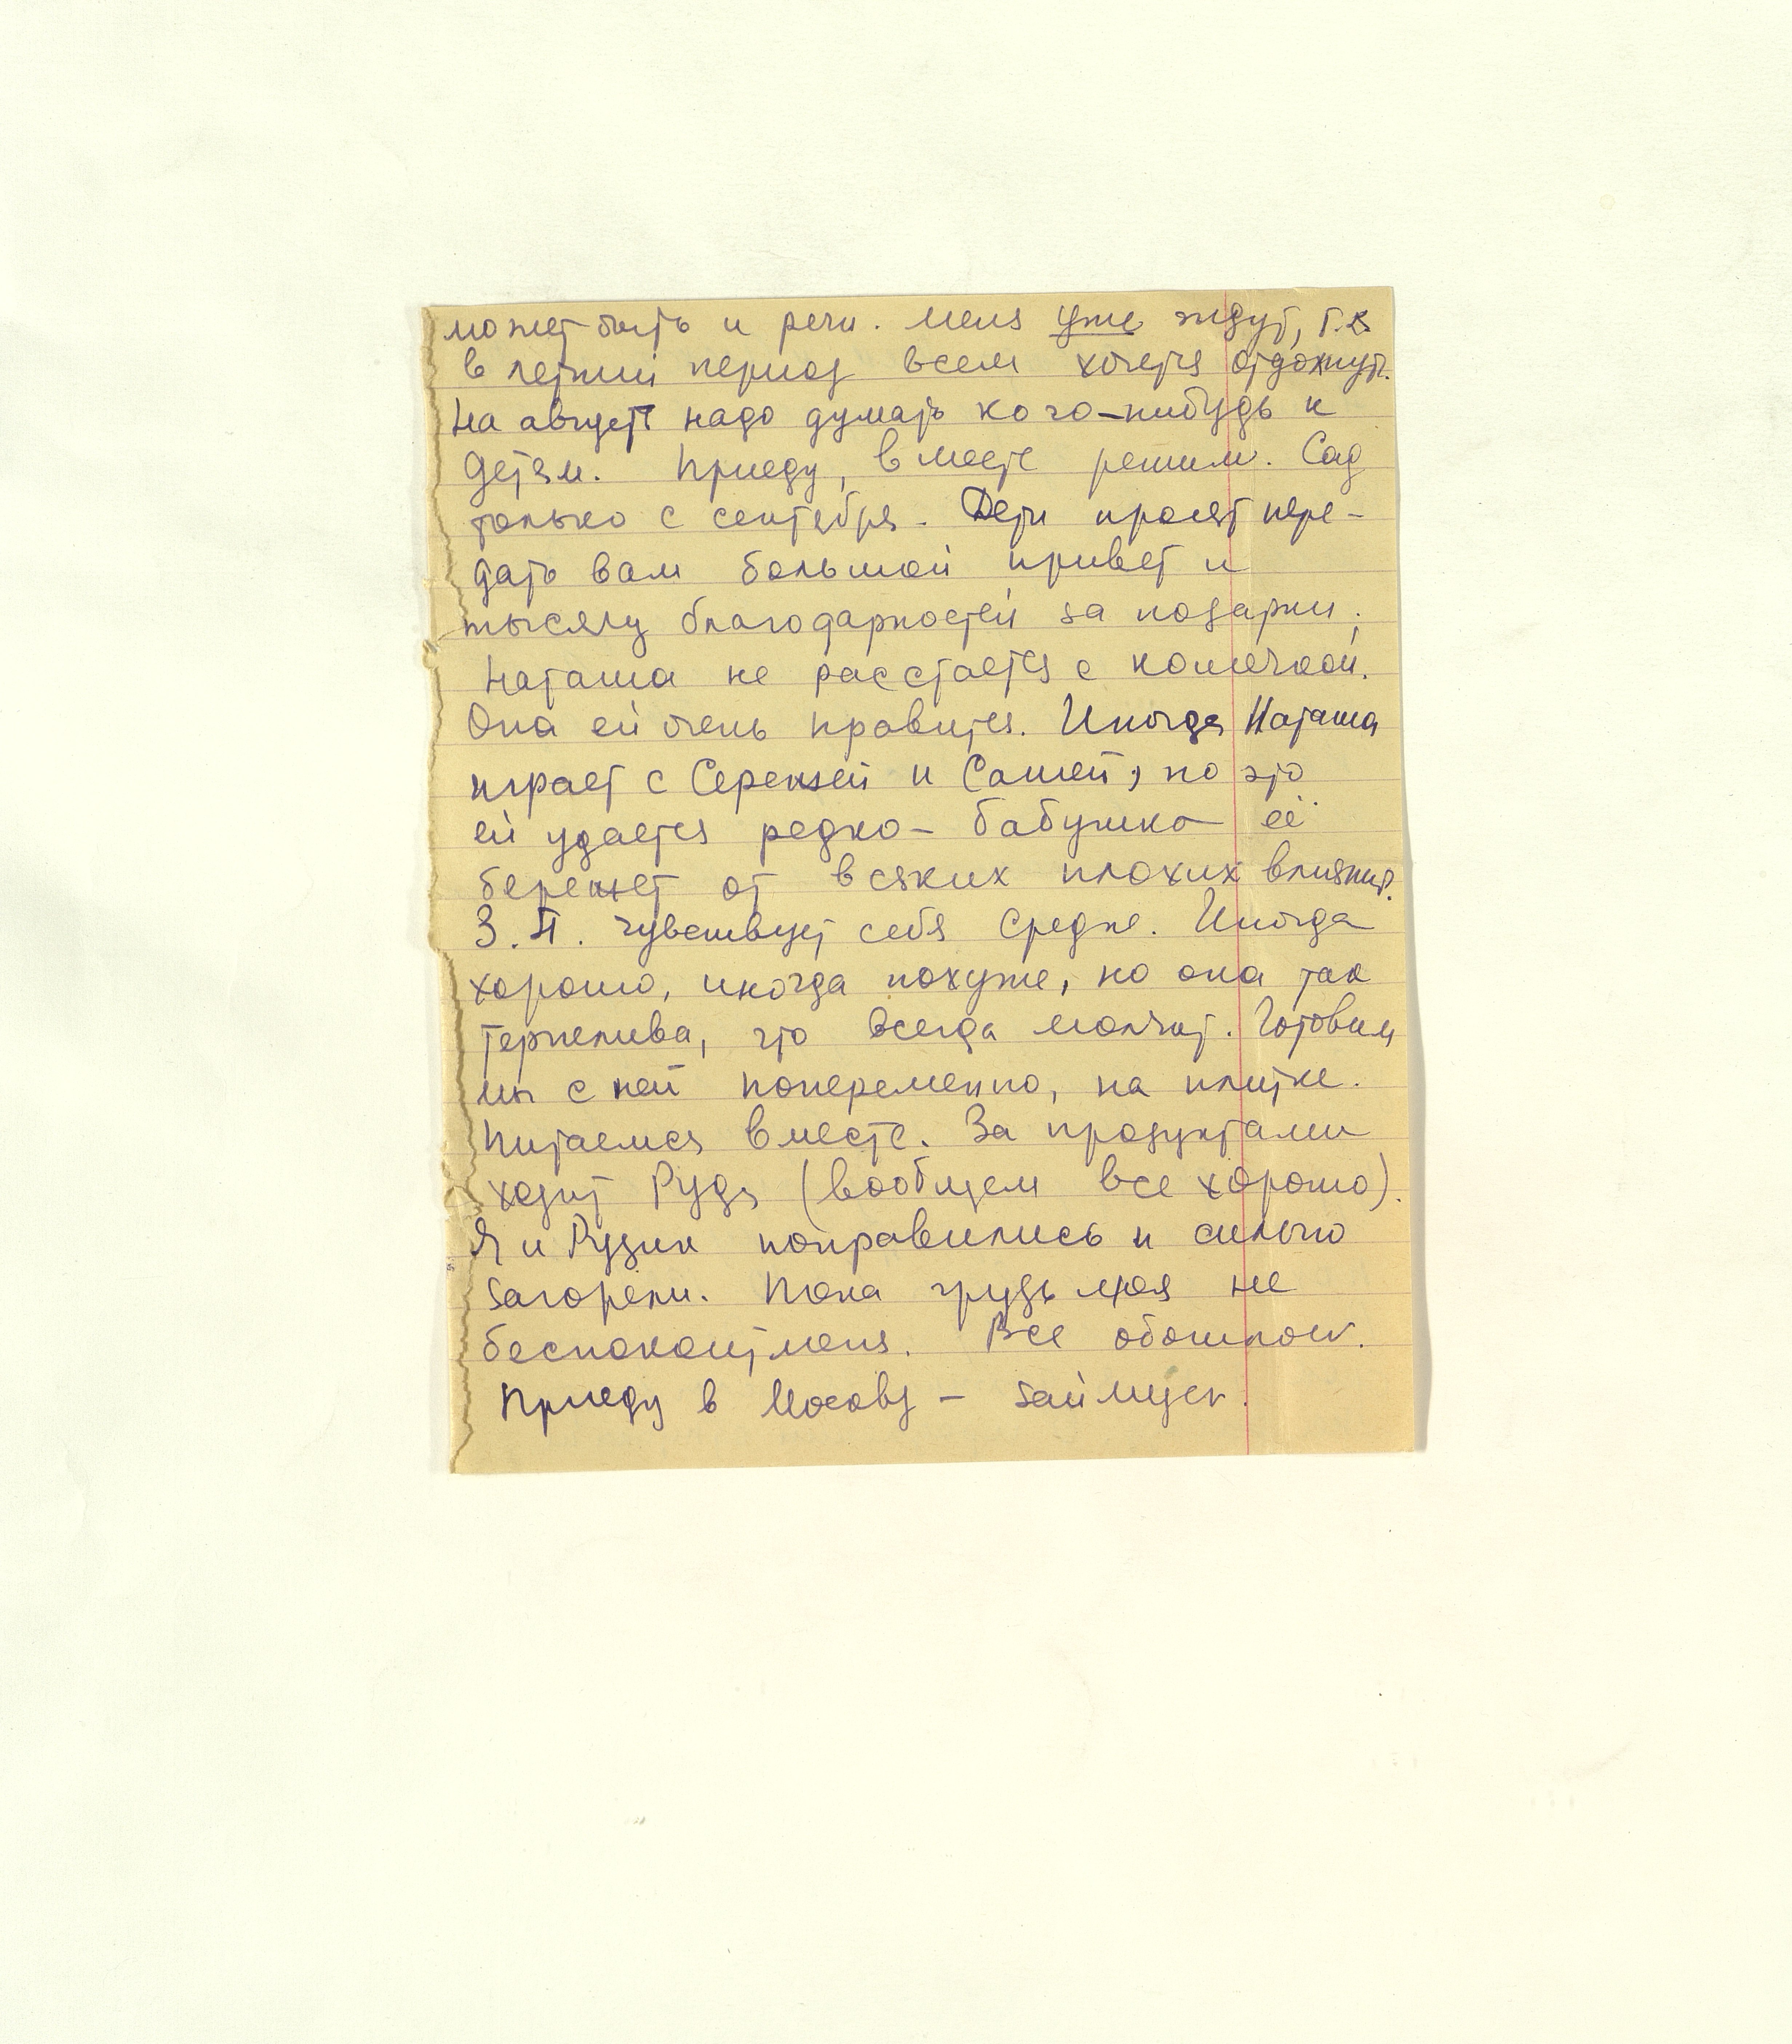 может быть и речи. Меня уже ждут, т.к.
в летний период всем хочется отдохнуть.
На август надо думать кого-нибудь к
детям. Приеду, вместе решим. Сад
только с сентября. Дети просят пере-
дать вам большой привет и
тысячу благодарностей за подарки.
Наташа не расстается с кошечкой.
Она ей очень нравится. Иногда Наташа
играет с Сережей и Сашей, но это
ей удается редко – бабушка её
бережет от всяких плохих влияний.
З.П. чувствует себя средне. Иногда
хорошо, иногда похуже, но она так
терпелива, что всегда молчит. Готовим
мы с ней попеременно, на плитке.
Питаемся вместе. За продуктами
ходит Рудя (вообщем все хорошо).
Я и Рудик поправились и сильно
загорели. Пока грудь моя не
беспокоит меня. Все обошлось.
Приеду в Москву – займусь.